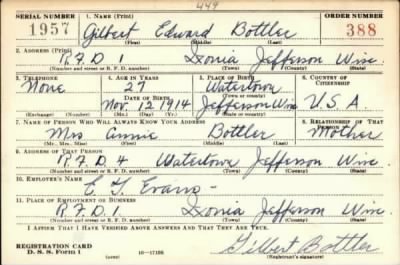 449
SERIAL NUMBER 1. NAME (Print) ORDER NUMBER
1957 Gilbert Edward Bottler 388
(First) (Middle) (Last)
2. ADDRESS (Print)
R.F.D 1 Ixonia Jefferson Wisc.
(Number and street or R. F. D. number) (Town) (County) (State)
3. TELEPHONE 4. AGE IN YEARS 5. PLACE OF BIRTH 6. COUNTRY OF CITIZENSHIP
None 27 Watertown
DATE OF BIRTH (Town or county)
Nov. 12 1914 Jefferson Wis U.S.A.
(Exchange) (Number) (Mo.) (Day) (Yr.) (State or country)
7. NAME OF PERSON WHO WILL ALWAYS KNOW YOUR ADDRESS 8. RELATIONSHIP OF THAT PERSON
Mrs Annie Bottler Mother
(Mr., Mrs., Miss) (First) (Middle) (Last)
9. ADDRESS OF THAT PERSON
R.F.D. 4 Watertown Jefferson Wisc.
(Number and street or R. F. D. number) (Town) (County) (State)
10. EMPLOYER'S NAME
Evans
11. PLACE OF EMPLOYMENT OR BUSINESS
R.F.D. 1 Ixonia Jefferson Wisc.
(Number and street or R. F. D. number) (Town) (County) (State)
I AFFIRM THAT I HAVE VERIFIED ABOVE ANSWERS AND THAT THEY ARE TRUE.
REGISTRATION CARD
D. S. S. Form 1 (over) 16—17105 Gilbert Bottler
(Registrant's signature)